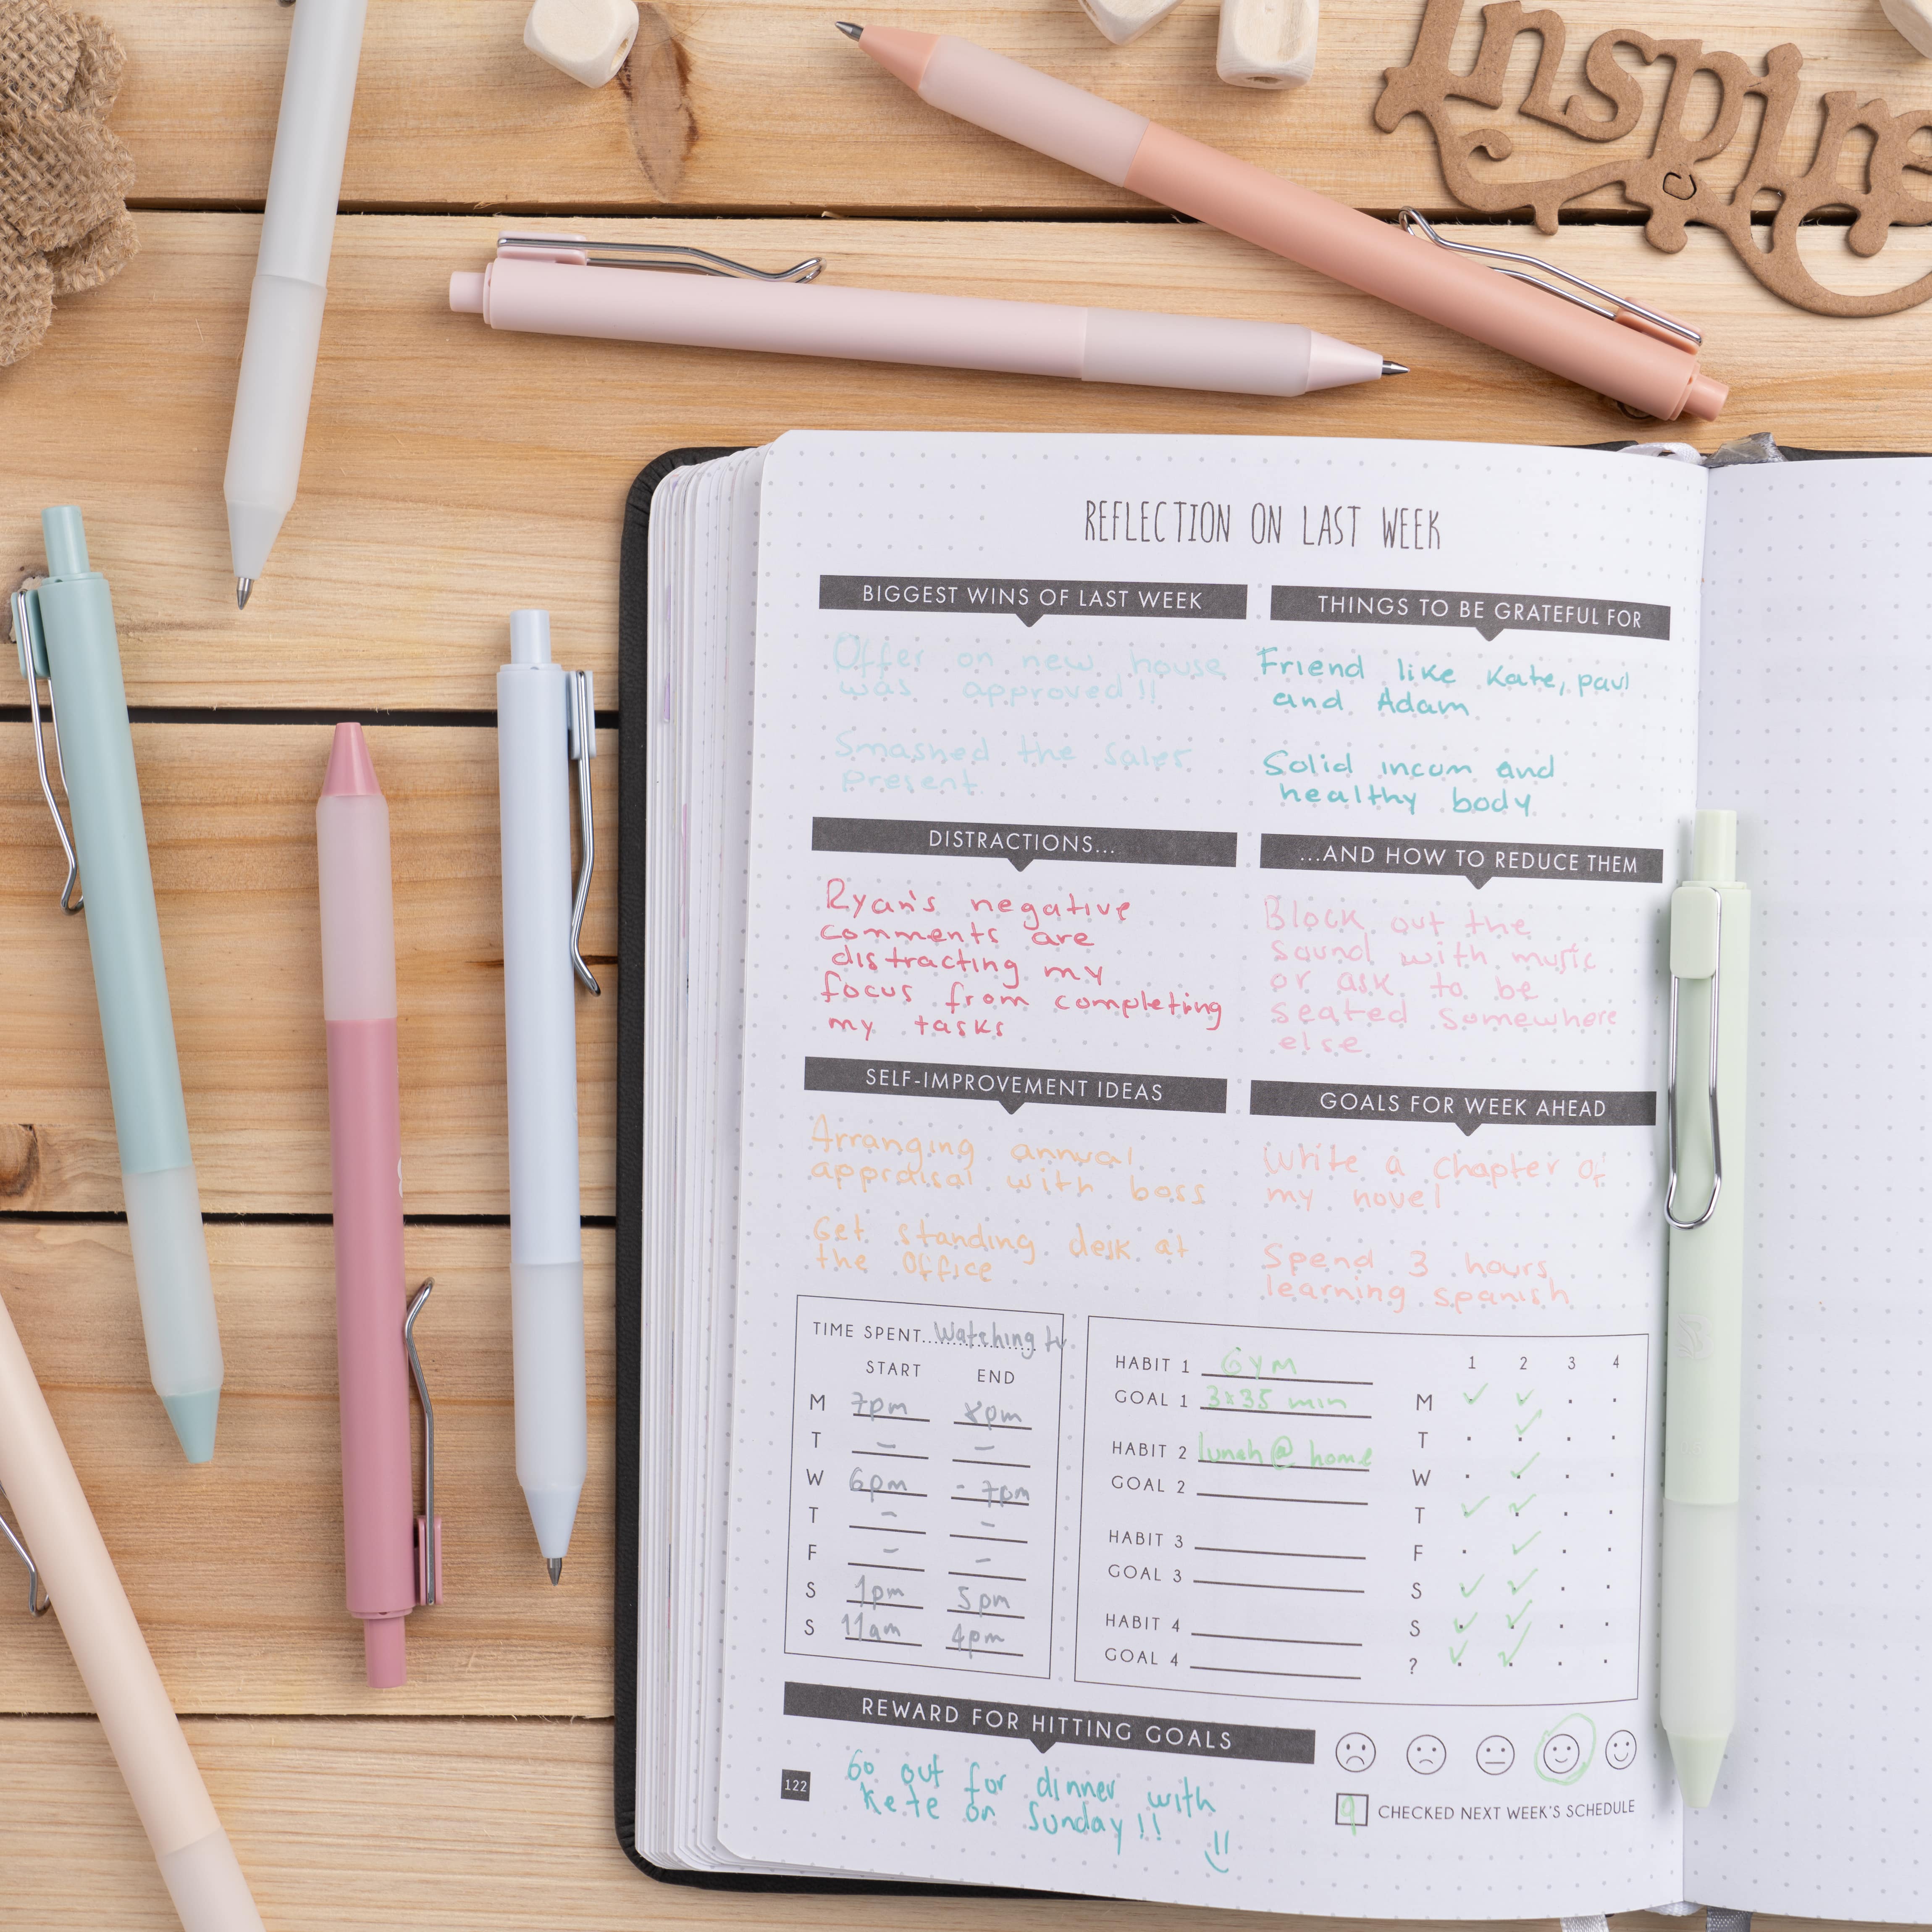 Inspire
REFLECTION ON LAST WEEK
BIGGEST WINS OF LAST WEEK
Offer on new house
was approved!!
Smashed the sales
present
THINGS TO BE GRATEFUL FOR
Friend like Kate, paul
and Adam
Solid incum and
healthy body
DISTRACTIONS...
Ryan's negative
comments are
distracting my
focus from completing
my tasks
...AND HOW TO REDUCE THEM
Block out the
sound with music
or ask to be
seated somewhere
else
SELF-IMPROVEMENT IDEAS
Arranging annual
appraisal with boss
Get standing desk at
the office
GOALS FOR WEEK AHEAD
Write a chapter of
my novel
Spend 3 hours
learning spanish
TIME SPENT... Watching tv
START END
M 7pm 8pm
T - -
W 6pm - 7pm
T - -
F - -
S 1pm 5pm
S 11am 4pm
HABIT 1 Gym
GOAL 1 3x35 min
HABIT 2 lunch @ home
GOAL 2
HABIT 3
GOAL 3
HABIT 4
GOAL 4
1 2 3 4
M ✓ ✓
T ✓
W ✓
T ✓ ✓
F ✓
S ✓ ✓
S ✓ ✓
? ✓ ✓
REWARD FOR HITTING GOALS
Go out for dinner with
Kete on Sunday!!
122
CHECKED NEXT WEEK'S SCHEDULE